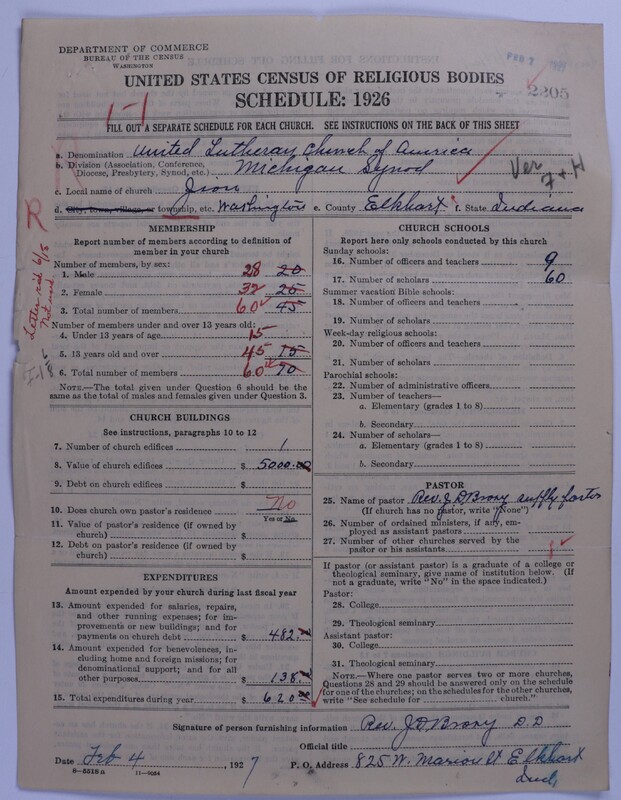 DEPARTMENT OF COMMERCE
BUREAU OF THE CENSUS
WASHINGTON
FEB 7
2205
UNITED STATES CENSUS OF RELIGIOUS BODIES
SCHEDULE: 1926
1-1
FILL OUT A SEPARATE SCHEDULE FOR EACH CHURCH. SEE INSTRUCTIONS ON THE BACK OF THIS SHEET
a. Denomination United Lutheran Church of America
b. Division (Association, Conference, Diocese, Presbytery, Synod, etc.) Michigan Synod
Ver
7+H
c. Local name of church
d. City, town, village, or township, etc. Washington e. County Elkhart f. State Indiana
R
Letter red 6/5
Not used
MEMBERSHIP
Report number of members according to definition of member in your church
Number of members, by sex:
1. Male 28 20
2. Female 32 25
3. Total number of members 60 45
Number of members under and over 13 years old:
4. Under 13 years of age 15
5. 13 years old and over 45 75
6. Total number of members 60 90
NOTE.—The total given under Question 6 should be the same as the total of males and females given under Question 3.
CHURCH BUILDINGS
See instructions, paragraphs 10 to 12
7. Number of church edifices 1
8. Value of church edifices $ 5000.00
9. Debt on church edifices $
10. Does church own pastor's residence? No
Yes or No
11. Value of pastor's residence (if owned by church) $
12. Debt on pastor's residence (if owned by church) $
EXPENDITURES
Amount expended by your church during last fiscal year
13. Amount expended for salaries, repairs, and other running expenses; for improvements or new buildings; and for payments on church debt $ 482.
14. Amount expended for benevolences, including home and foreign missions; for denominational support; and for all other purposes $ 138.
15. Total expenditures during year $ 620
CHURCH SCHOOLS
Report here only schools conducted by this church
Sunday schools:
16. Number of officers and teachers 9
17. Number of scholars 60
Summer vacation Bible schools:
18. Number of officers and teachers
19. Number of scholars
Week-day religious schools:
20. Number of officers and teachers
21. Number of scholars
Parochial schools:
22. Number of administrative officers
23. Number of teachers—
a. Elementary (grades 1 to 8)
b. Secondary
24. Number of scholars—
a. Elementary (grades 1 to 8)
b. Secondary
PASTOR
25. Name of pastor Rev. J D Brosy supply pastor
(If church has no pastor, write "None")
26. Number of ordained ministers, if any, employed as assistant pastors
27. Number of other churches served by the pastor or his assistants
If pastor (or assistant pastor) is a graduate of a college or theological seminary, give name of institution below. (If not a graduate, write "No" in the space indicated.)
Pastor:
28. College
29. Theological seminary
Assistant pastor:
30. College
31. Theological seminary
NOTE.—Where one pastor serves two or more churches, Questions 28 and 29 should be answered only on the schedule for one of the churches; on the schedules for the other churches, write "See schedule for church."
Signature of person furnishing information Rev. J D Brosy D.D
Official title
Date Feb 4, 1927 P. O. Address 825 W. Marion St Elkhart
Ind
8—5518 a 11—8664